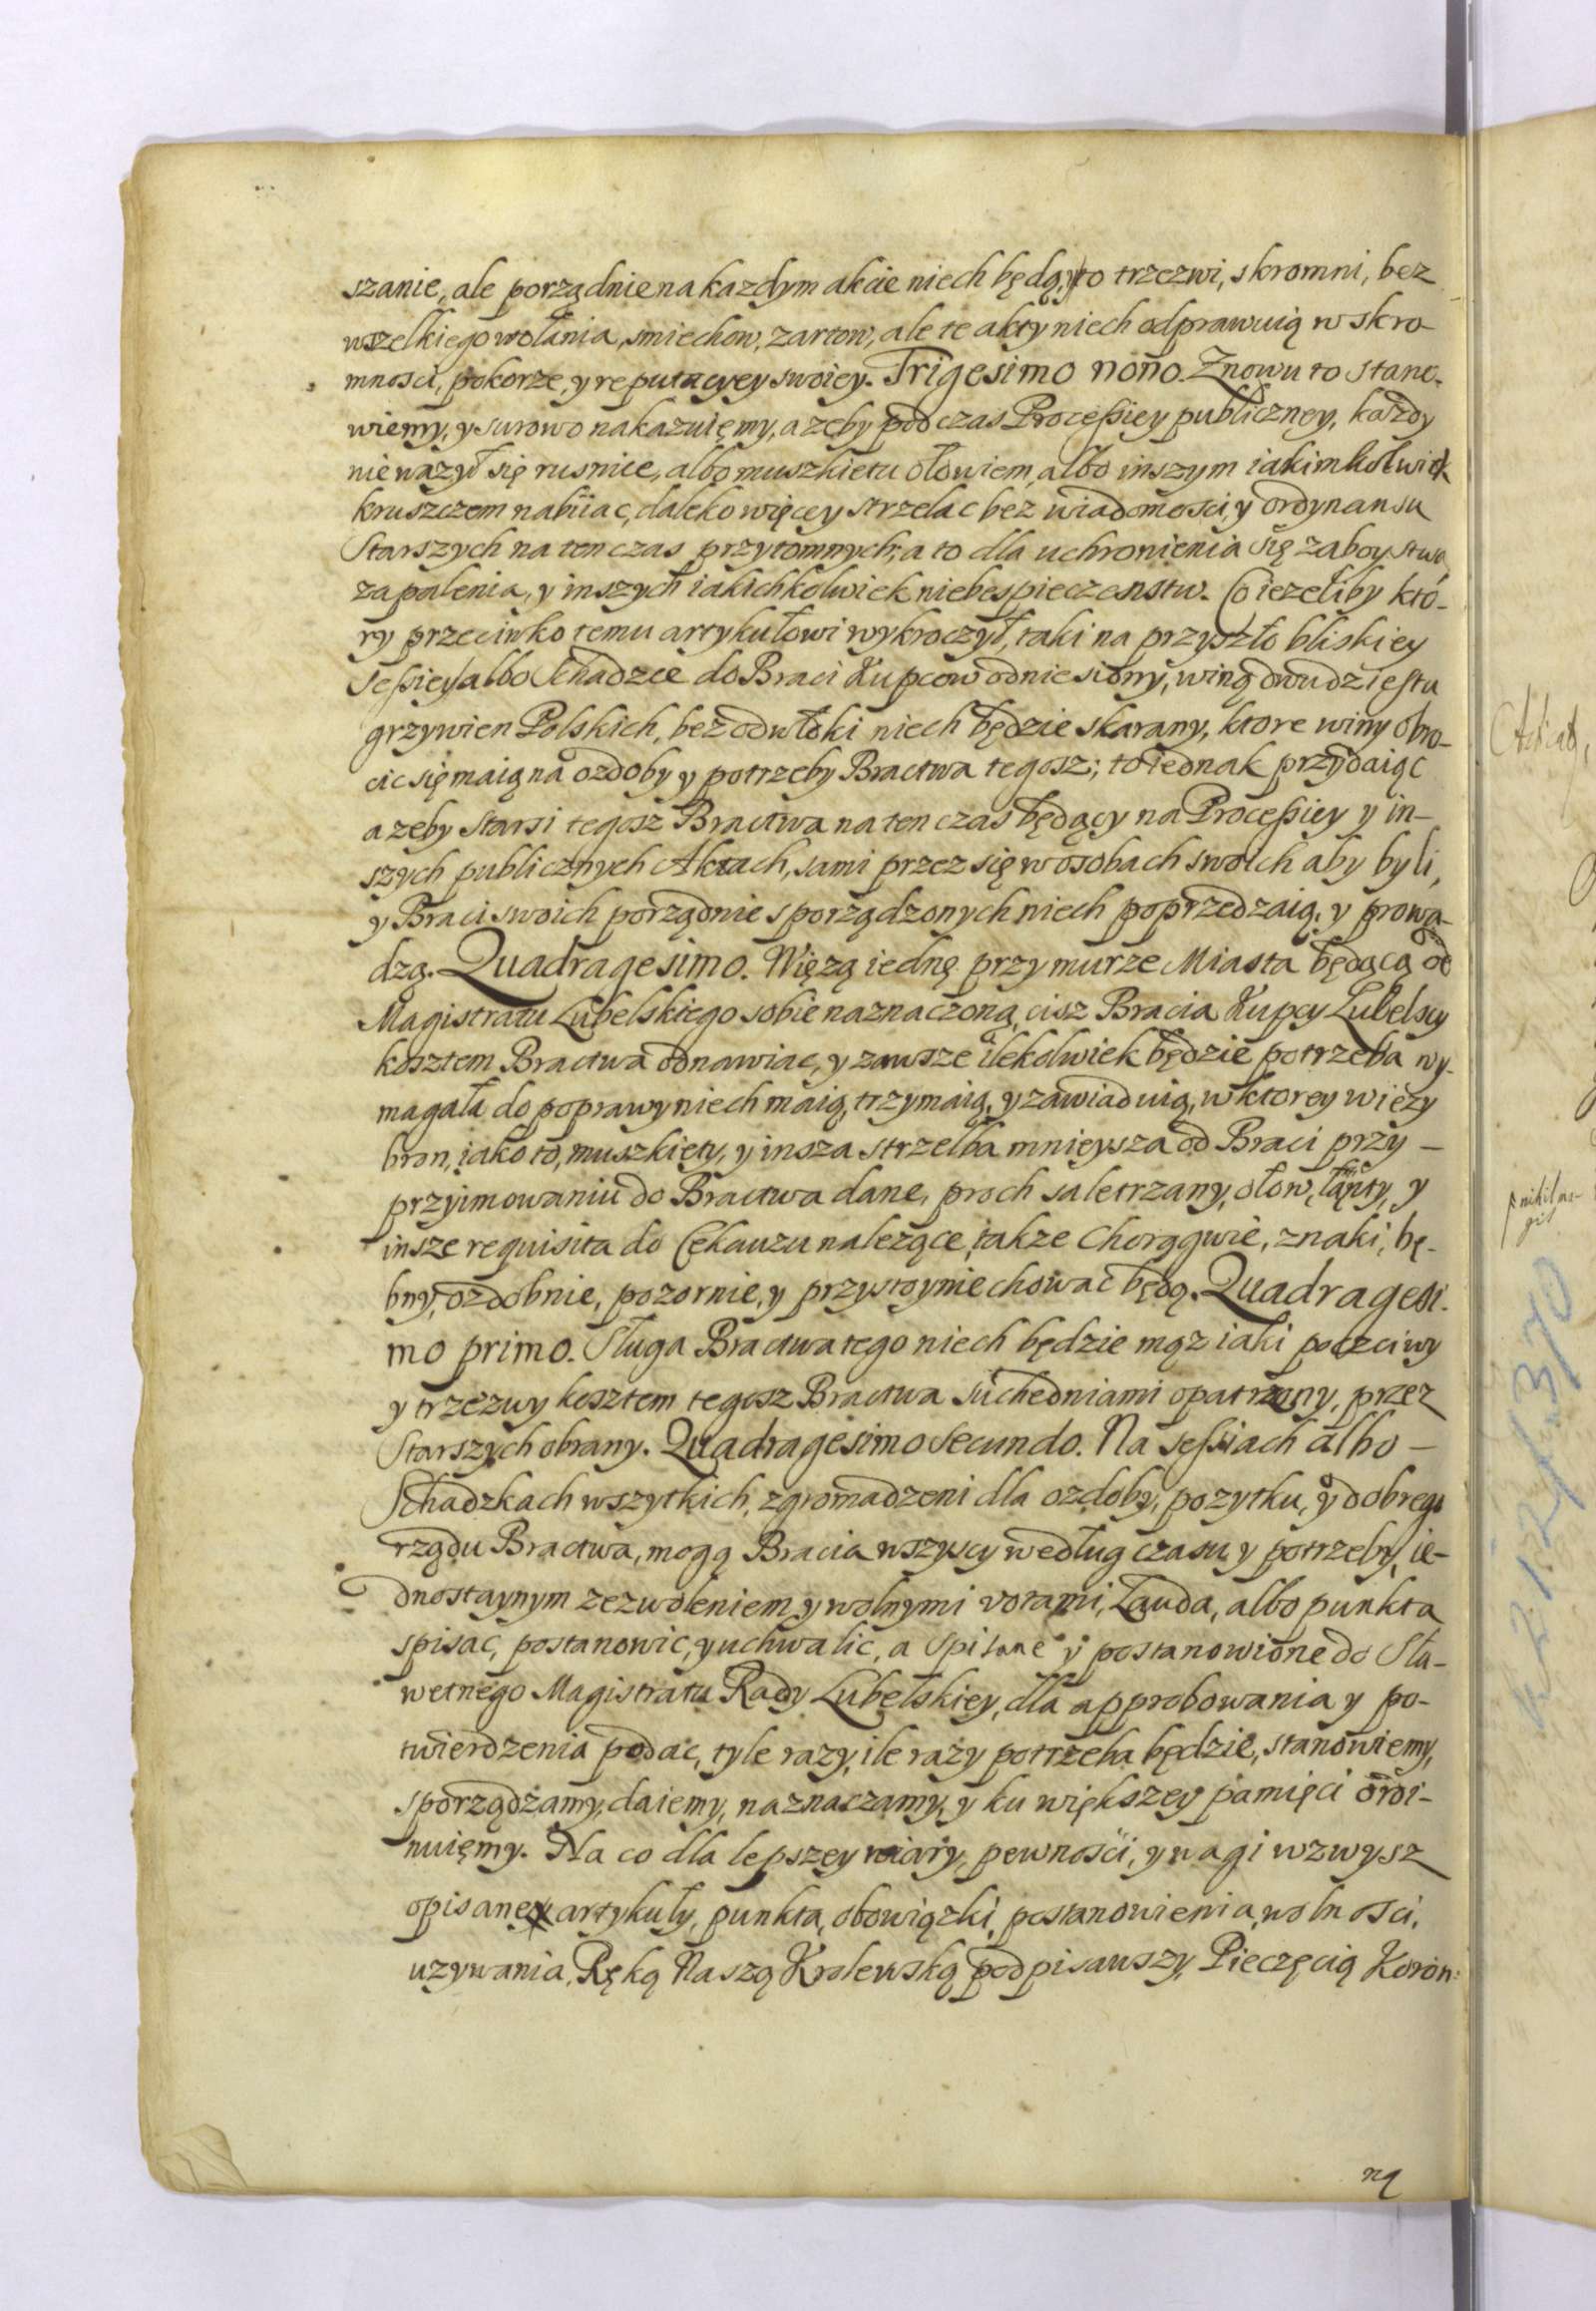 szanie, ale porządnie na kazdym akcie niech będą, y to trzezwi, skromni, bez
wszelkiego wołania, smiechow, zartow, ale te akty niech odprawuią w skro-
mnosci, pokorze, y reputacyey swoiey. Trigesimo nono. Znowu to stano-
wiemy, y surowo nakazuięmy, a zeby pod czas Processiey publiczney, kazdy
nie wazył się rusnice, albo muszkietu ołowiem, albo inszym iakimkolwiek
kruszczem nabiiac, daleko więcey strzelac bez wiadomosci, y ordynansu
Starszych na ten czas przytomnych, a to dla uchronienia się zaboystwa
zapalenia, y inszych iakichkolwiek niebespieczenstw. Co iezeliby któ-
ry przeciwko temu artykułowi wykroczył, taki na przyszło bliskiey
Sessiey albo Schadzce do Braci Kupcow odniesiony, winą dwudziestu
grzywien Polskich, bez odwłoki niech będzie skarany, ktore winy obro-
cic się maią na ozdoby y potrzeby Bractwa tegosz; to iednak przydaiąc
a zeby starsi tegosz Bractwa na ten czas będący na Processiey y in-
szych publicznych Aktach, sami przez się w osobach swoich aby byli,
y Braci swoich porządnie sporządzonych niech poprzedzaią, y prowa-
dzą. Quadragesimo. Więzą iednę przy murze Miasta będącą od
Magistratu Lubelskiego sobie naznaczoną, cisz Bracia Kupcy Lubelscy
kosztem Bractwa odnawiac, y zawsze ilekolwiek będzie potrzeba wy-
magała do poprawy niech maią, trzymaią, y zawiaduią, w ktorey wiezy
bron, iako to, muszkiety, y insza strzelba mnieysza od Braci przy -
przyimowaniu do Bractwa dane, proch saletrzany, ołow, ląnty, y
insze requisita do Cekauzu nalezące, takze Chorągwie, znaki, bę-
bny, ozdobnie, pozornie, y przystoynie chowac będą. Quadragesi-
mo primo. Sługa Bractwa tego niech będzie mąz iaki poczciwy
y trzezwy kosztem tegosz Bractwa suchedniami opatrzony, przez
Starszych obrany. Quadragesimo Secundo. Na sessiach albo -
Schadzkach wszytkich, zgromadzeni dla ozdoby, pozytku, y dobrego
rządu Bractwa, mogą Bracia wszyscy według czasu, y potrzeby, ie-
dnostaynym zezwoleniem y wolnymi votami, Lauda, albo punkta
spisac, postanowic, y uchwalic, a spisane y postanowione do Sła-
wetnego Magistratu Rady Lubelskiey, dla approbowania y po-
twierdzenia podac, tyle razy, ile razy potrzeba będzie, stanowiemy,
sporządzamy, daiemy, naznaczamy, y ku większey pamięci ordi-
nuięmy. Na co dla lepszey wiary, pewnosci, y wagi wzwysz
opisane artykuły, punkta, obowiązki, postanowienia, wolnosci,
uzywania, Ręką Naszą Krolewską podpisawszy, Pieczęcią Koron:
ną